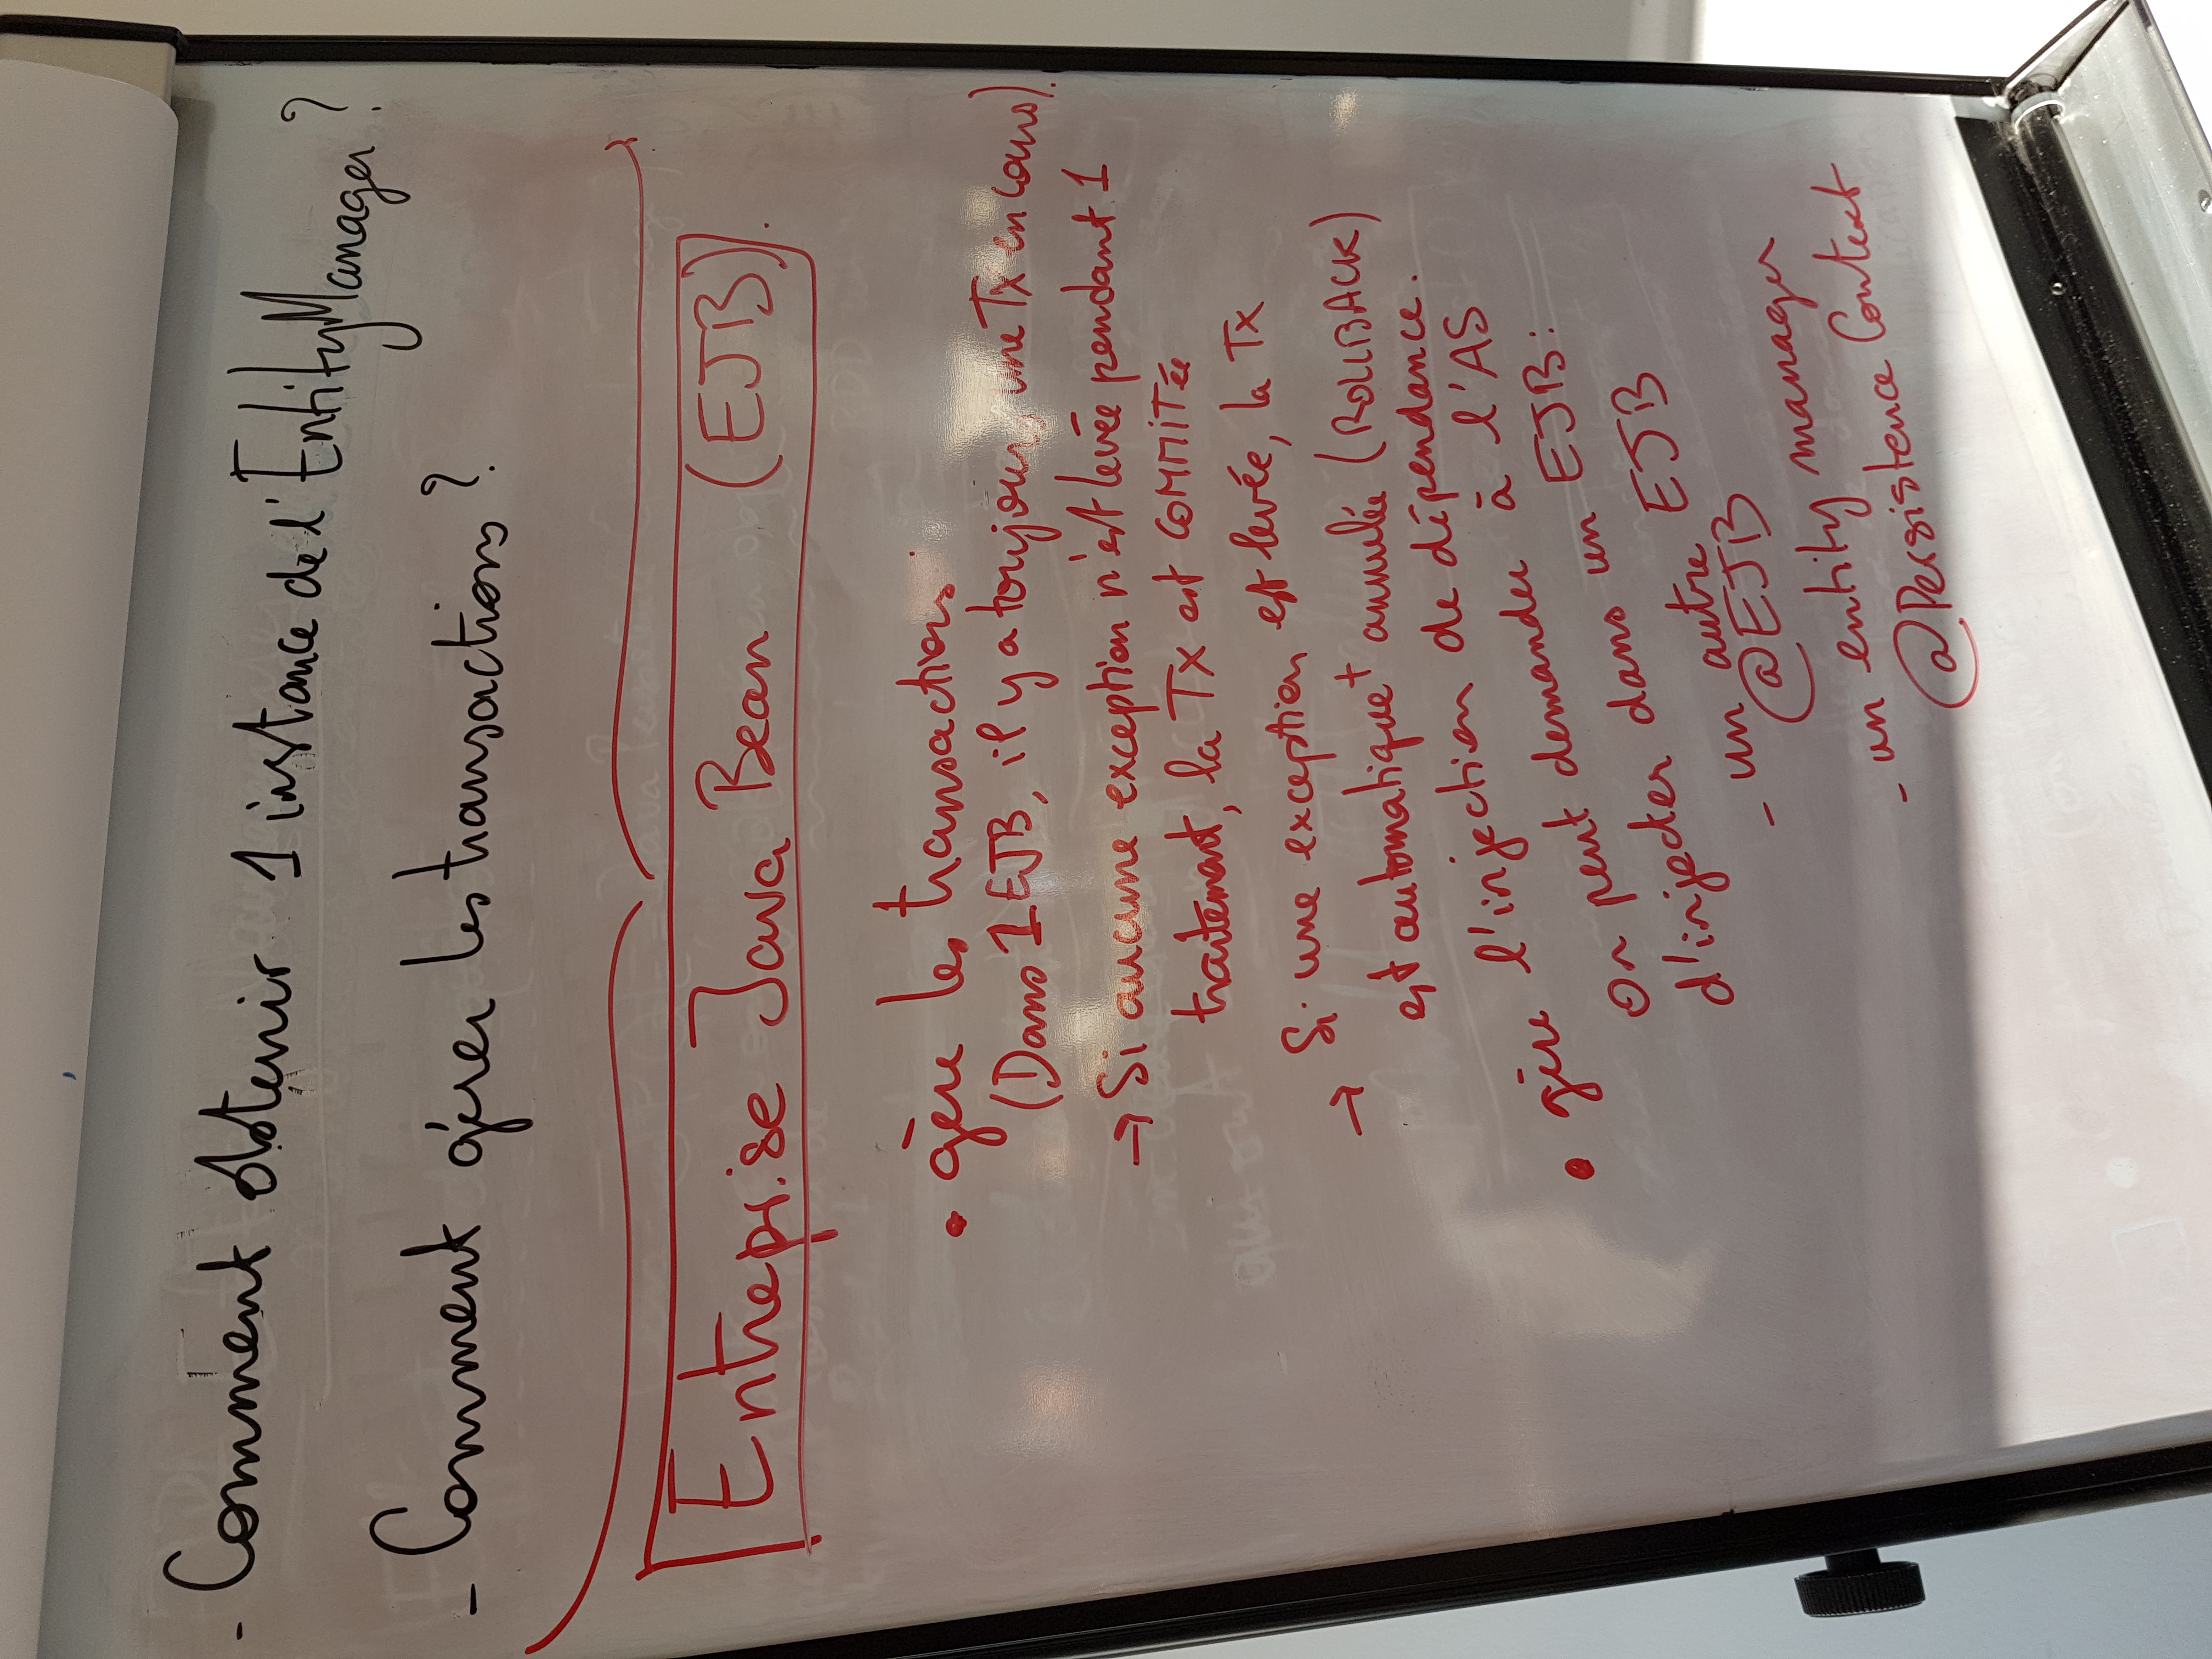 - Comment obtenir 1 instance de l'EntityManager ?
- Comment gérer les transactions ?
Entreprise Java Bean (EJB).
• gère les transactions
(Dans 1 EJB, il y a toujours une Tx en cours).
→ Si aucune exception n'est levée pendant 1
traitement, la Tx est COMMITée
→ Si une exception est levée, la Tx
est automatique+ annulée (ROLLBACK)
• gère l'injection de dépendance.
On peut demander à l'AS
d'injecter dans un EJB :
- un autre EJB
@EJB
- un entity manager
@Persistence Context